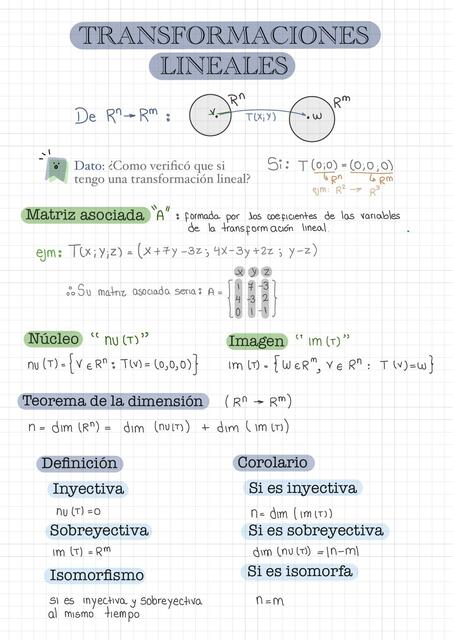 TRANSFORMACIONES
LINEALES
De Rⁿ→Rᵐ :
Rⁿ
Rᵐ
v
T(x;y)
w
Dato: ¿Como verificó que si
tengo una transformación lineal?
Si: T(0;0) = (0,0,0)
Rⁿ
Rᵐ
ejm: R² → R³
Matriz asociada "A" : formada por los coeficientes de las variables
de la transformación lineal.
ejm: T(x;y;z) = (x+7y-3z ; 4x-3y+2z ; y-z)
x y z
∴ Su matriz asociada seria: A = [1 7 -3
4 -3 2
0 1 -1]
Núcleo " nu(T)"
nu(T) = {v∈Rⁿ : T(v) = (0,0,0)}
Imagen " im(T)"
im(T) = {w∈Rᵐ, v∈Rⁿ : T(v)=w}
Teorema de la dimensión (Rⁿ → Rᵐ)
n = dim(Rⁿ) = dim (nu(T)) + dim (im(T))
Definición
Inyectiva
nu(T) = 0
Sobreyectiva
im(T) = Rᵐ
Isomorfismo
si es inyectiva y sobreyectiva
al mismo tiempo
Corolario
Si es inyectiva
n = dim (im(T))
Si es sobreyectiva
dim (nu(T)) = |n-m|
Si es isomorfa
n = m